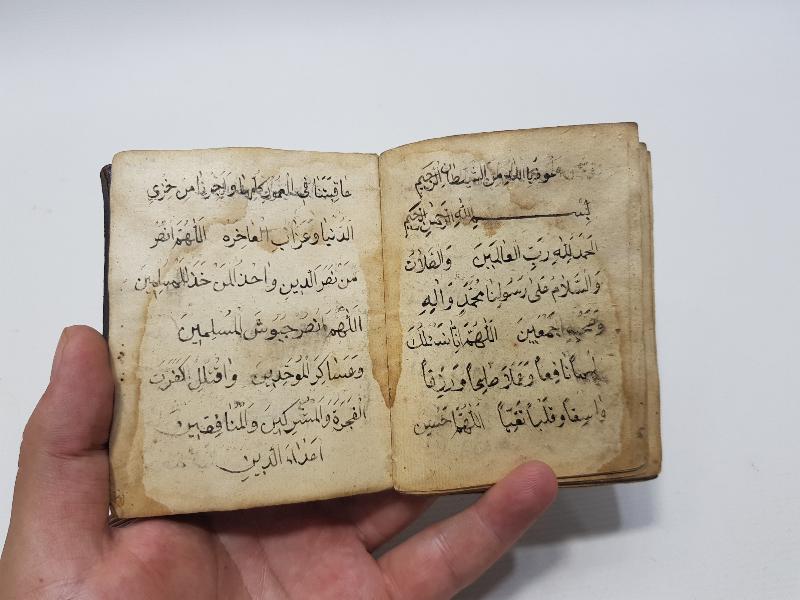 عوذ بالله من الشيطان الرجيم
بسم الله الرحمن الرحيم
الحمد لله رب العالمين والصلات
والسلام على رسولنا محمد واله
وصحبه اجمعين اللهم انا نسئلك
نافعا وعملا صالحا ورزقا
واسعا وقلبا نقيا اللهم احسن
عاقبتنا في العمور كلها واجرنا من خزي
الدنيا وعزاب العاخره اللهم انصر
من نصر الدين واحذل من خذل المسلمين
اللهم انصر جيوش المسلمين
وعساكر الموحدين واقتل كفرت
الفجرة والمشركين والمنافقين
اعداء الدين